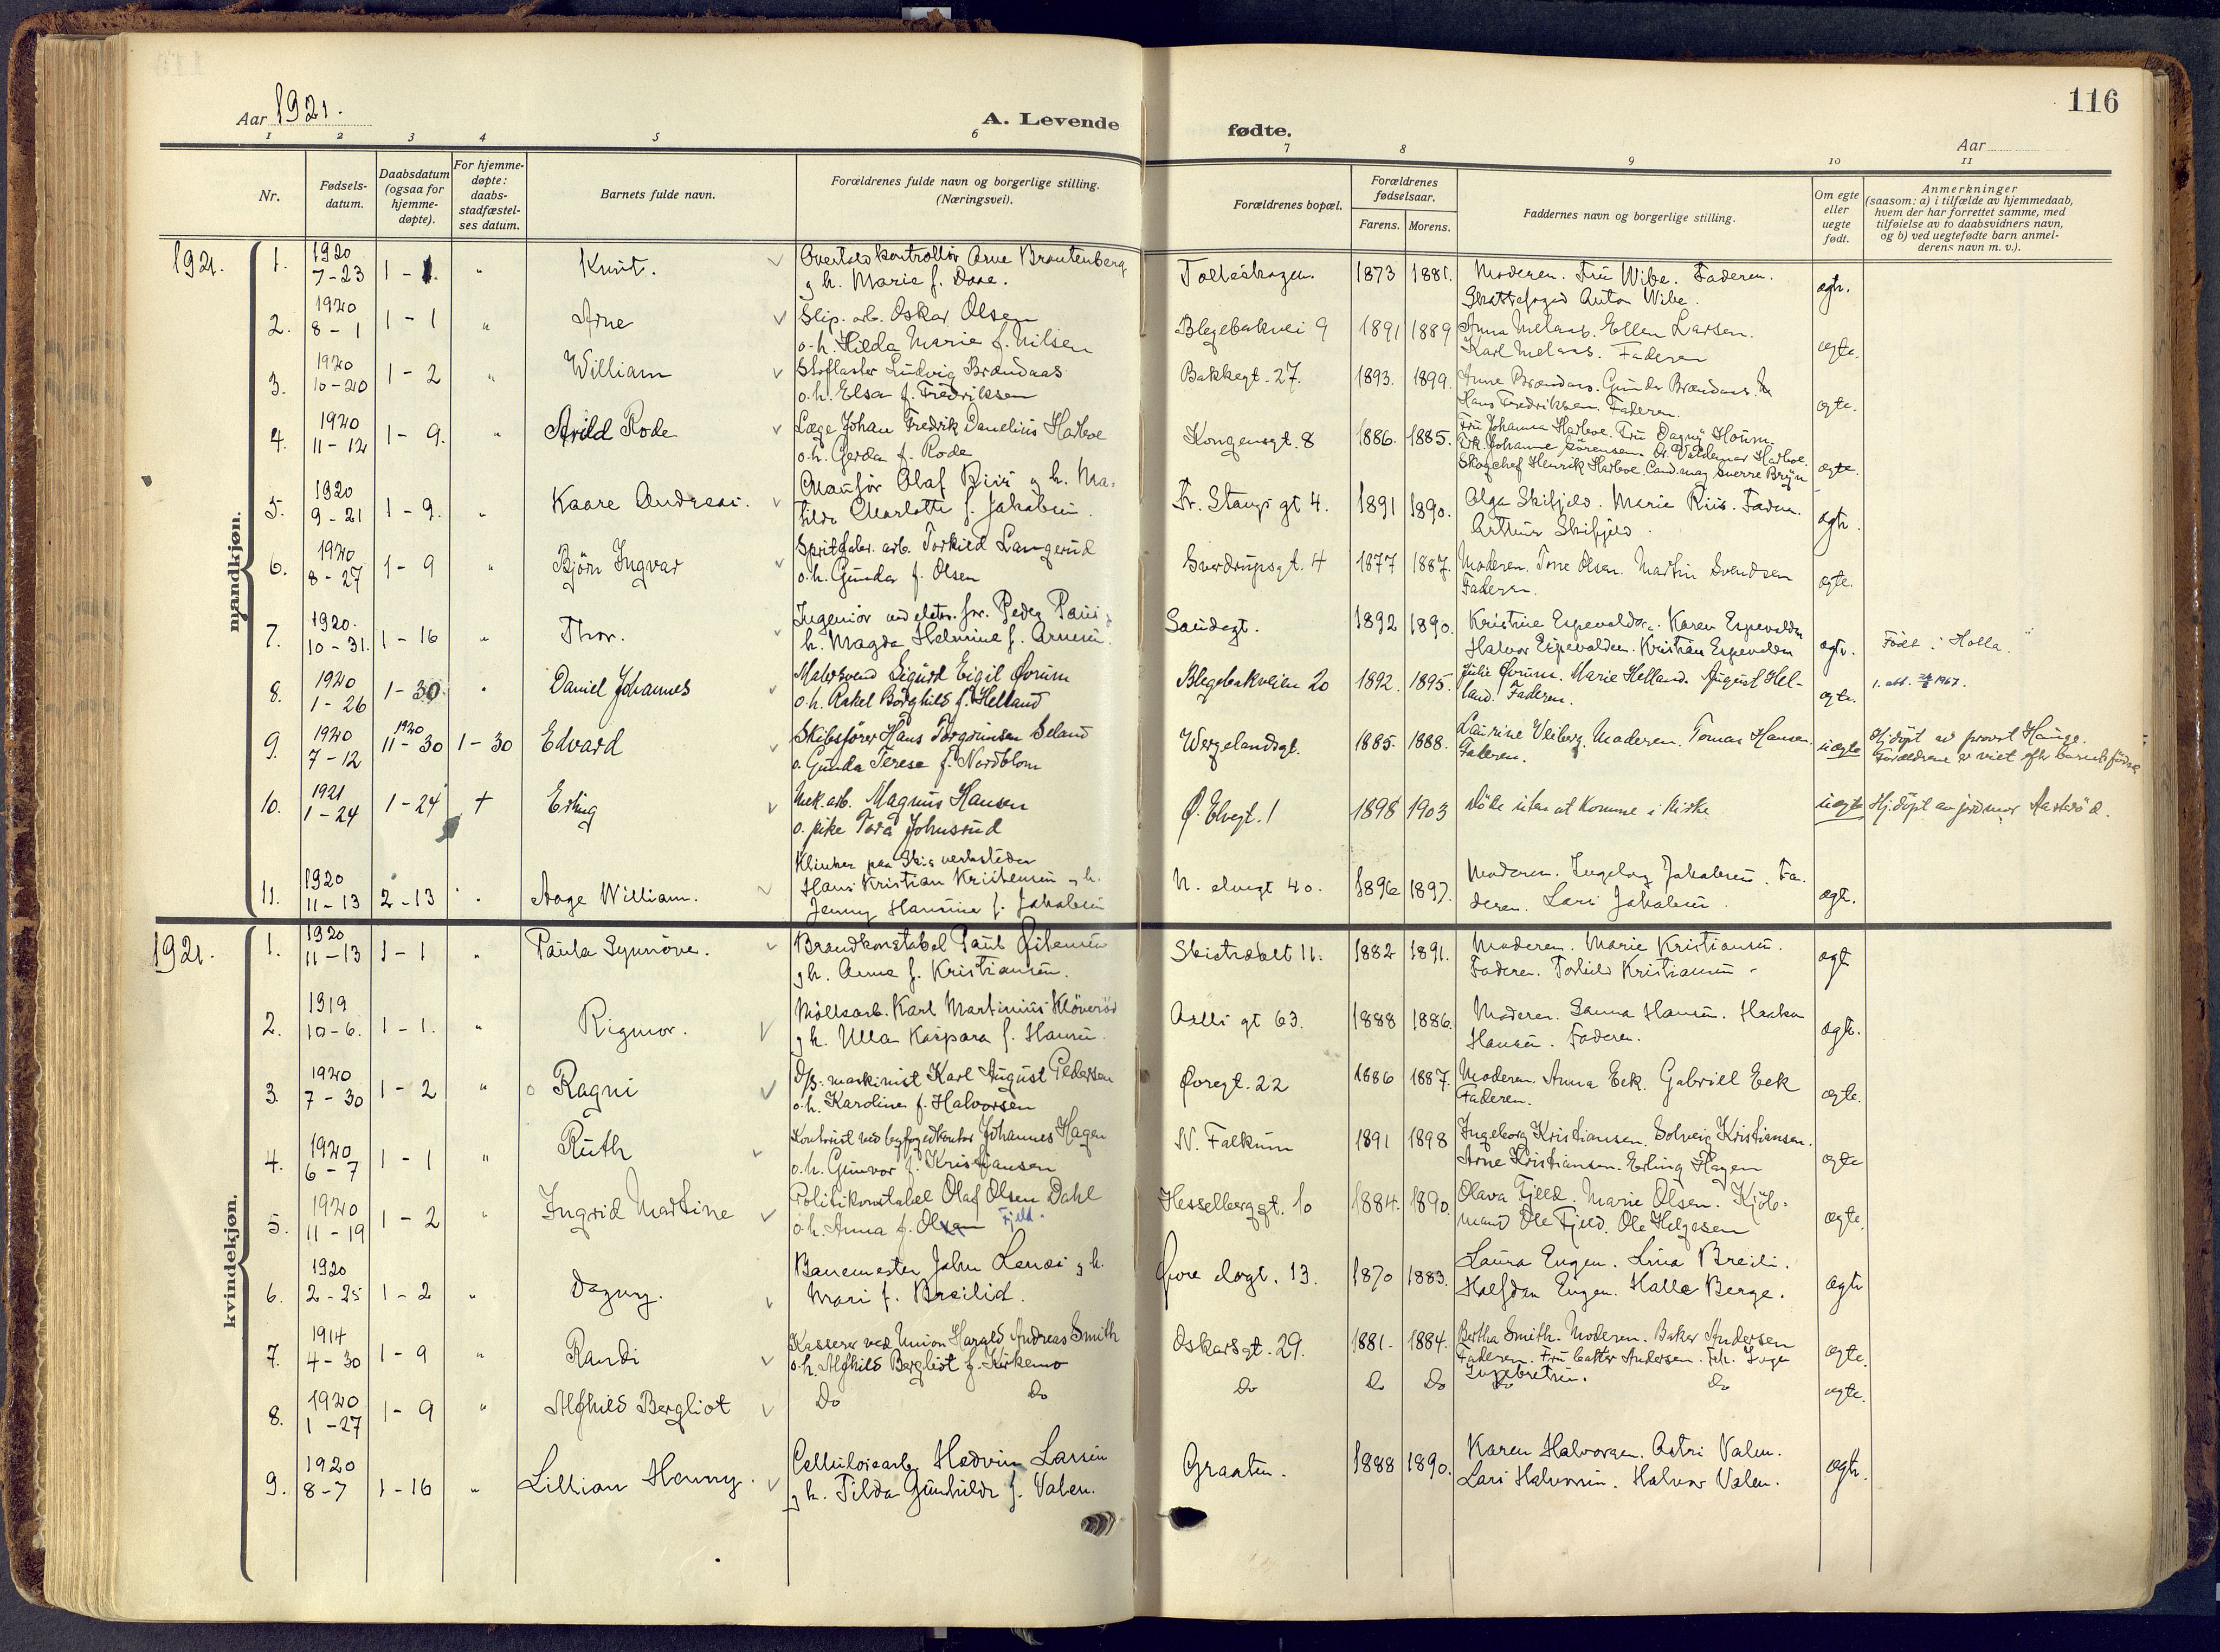 116
Aar 1921.
A. Levende fødte.
Aar
1 2 3 4 5 6 7 8 9 10 11
Nr.
Fødsels-
datum.
Daabsdatum
(ogsaa for
hjemme-
døpte).
For hjemme-
døpte:
daabs-
stadfæstel-
ses datum.
Barnets fulde navn.
Forældrenes fulde navn og borgerlige stilling.
(Næringsvei).
Forældrenes bopæl.
Forældrenes
fødselsaar.
Farens. Morens.
Faddernes navn og borgerlige stilling.
Om egte
eller
uegte
født.
Anmerkninger
(saasom: a) i tilfælde av hjemmedaab,
hvem der har forrettet samme, med
tilføielse av to daabsvidners navn,
og b) ved uegtefødte barn anmel-
derens navn m. v.).
mandkjøn.
1921. 1. 1920 7-23 1-1. " Knut.
Overtoldkontrollør Arne Brautenberg
g h. Marie f. Dove.
1873 1881. Moderen. Fru Wibe. Faderen.
Anton Wibe. egte.
2. 1920 8-1 1-1 " Arne
Slip. arb. Oskar Olsen
o. h. Hilda Marie f. Nilsen
Blegebakvei 9 1891 1889 Anna Melaas. Ellen Larsen.
Karl Melaas. Faderen egte.
3. 1920 10-20 1-2 " William
Ludvig Brændaas
o. h. Elsa f. Fredriksen
Bakkegt. 27. 1893. 1899. Anne Brændaas. Gunda Brændaas.
Hans Fredriksen. Faderen. egte.
4. 1920 11-12 1-9. " Arild Rode
Læge Johan Fredrik Danelius Harboe
o. h. Gerda f. Rode
Kongensgt. 8 1886. 1885. Fru Johanna Harboe. Fru Dagny Houm.
Frk. Johanne Sörensen. Dr. Valdemar Harboe.
Skogchef Henrik Harboe. Cand. mag. Sverre Bryn egte.
5. 1920 9-21 1-9. " Kaare Andreas.
Olaf Riis g h. Ma-
tilde Charlotte f. Jakobsen.
Fr. Stangs gt 4. 1891 1890. Olga Skifjeld. Marie Riis. Faderen.
Arthur Skifjeld. egte.
6. 1920 8-27 1-9 " Bjørn Ingvar
Spritfabr. arb. Torkild Langerud
o. h. Gunda f. Olsen
Sverdrupsgt. 4 1877 1887. Moderen. Tone Olsen. Martin Svendsen
Faderen. egte.
7. 1920. 10-31. 1-16 " Thor.
Ingeniør ved elektr. Peder Paus g
h. Magda Helmine f. Arnesen.
Sandegt. 1892 1890. Kristine Espevalden. Karen Espevalden
Halvor Espevalden. Kristian Espevalden egte. Født i Holla.
8. 1920 1-26 1-30 " Daniel Johannes
Malersvend Sigurd Eigil Øvrum
o. h. Rakel Borghild f. Helland
Blegebakveien 20 1892. 1895. Julie Øvrum. Marie Helland. August Hel-
land. Faderen. egte. 1. att. 1967.
9. 1920 7-12 1920 11-30 1-30 Edvard
Skibsfører Hans Torgrimsen Seland
o. Gunda Terese f. Nordblom
Wergelandsgt. 1885. 1888. Laurine Weiberg. Moderen. Tomas Hansen
Faderen. uegte Hj.døpt av provst Hauge.
Forældrene er viet efter barnets fødsel
10. 1921 1-24 1-24 † Erling
Mek. arb. Magnus Hansen
o. pike Tora Johnsrud
Ø. Elvegt. 1 1898 1903 døde uten at komme i kirke uegte Hj.døpt av jordmor
11. 1920 11-13 2-13 " Aage William.
Klinker paa Skiens verksteder
Hans Kristian Kristensen g h.
Jenny Hansine f. Jakobsen
N. elvegt 40. 1896 1897. Moderen. Ingeborg Jakobsen. Fa-
deren. Lars Jakobsen. egte.
kvindekjøn.
1921. 1. 1920 11-13 1-1 " Paula Synnöve.
Brandkonstabel Paul
g h. Anna f. Kristiansen.
11. 1882 1891. Moderen. Marie Kristiansen.
Faderen. Torleif Kristiansen egte
2. 1919 10-6. 1-1. " Rigmor.
Møllearb. Karl Martinius Kløverød
g h. Ulla Kaspara f. Hansen.
gt 63. 1888 1886. Moderen. Sanna Hansen. Haakon
Hansen. Faderen. egte.
3. 1920 7-30 1-2 " Ragni
D/S. maskinist Karl August Pedersen
o. h. Karoline f. Halvorsen
Øvregt. 22 1886 1887. Moderen. Anna Eek. Gabriel Eek
Faderen. egte.
4. 1920 6-7 1-1 " Ruth
Kontorist ved byfogedkontor Johannes Hagen
o. h. Gunvor f. Kristiansen
N. Falkum 1891 1898 Ingeborg Kristiansen. Solveig Kristiansen.
Arne Kristiansen. Erling Hagen egte
5. 1920 11-19 1-2 " Ingrid Martine
Politikonstabel Olaf Olsen Dahl
o. h. Anna f. Olsen Fjeld.
Hesselberggt. 10 1884. 1890. Olava Fjeld. Marie Olsen. Kjöb-
mand Ole Fjeld. Ole Helgesen egte.
6. 1920 2-25 1-2 " Dagny.
Banemester John g h.
Mari f. Breilid.
Øvre elvegt. 13. 1870 1883. Laura Engen. Lina Breili.
Halfdan Engen. Halle Berge. egte
7. 1914 4-30 1-9 " Randi
Kasserer ved Union Harald Andreas Smith
o. h. Alfhild Bergliot f. Kirkemo
Oskarsgt. 29. 1881. 1884. Bertha Smith. Moderen. Baker Andersen
Faderen. Fru Andersen. Frk. Inga
Ingebretsen. egte.
8. 1920 1-27 1-9 " Alfhild Bergliot
Do Do Do Do Do Do Do egte.
9. 1920 8-7 1-16 " Lillian Henny.
Celluloosearb. Hedvin Larsen
g h. Tilda Gunhilde f. Valen.
Graaten. 1888 1890. Karen Halvorsen. Astri Valen.
Lars Halvorsen. Halvor Valen. egte.